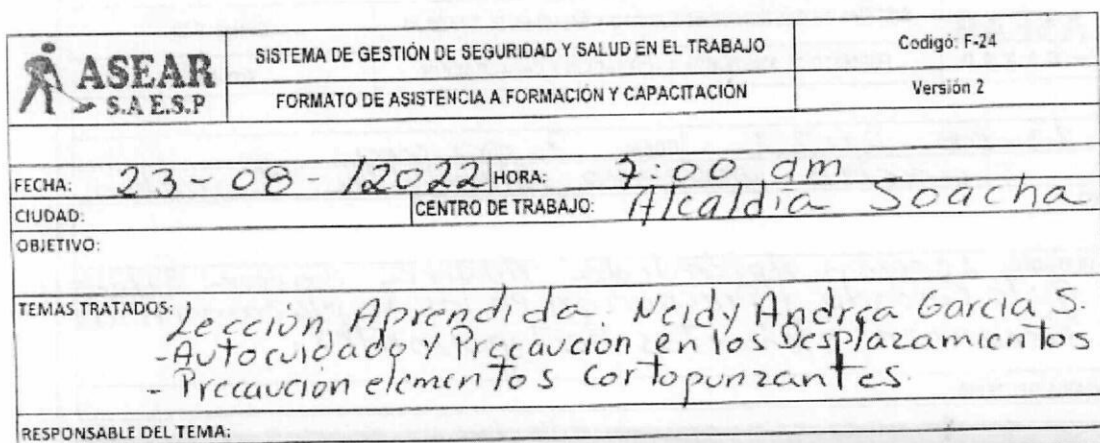 ASEAR
S.A E.S.P
SISTEMA DE GESTIÓN DE SEGURIDAD Y SALUD EN EL TRABAJO
FORMATO DE ASISTENCIA A FORMACIÓN Y CAPACITACIÓN
Codigo: F-24
Versión 2
FECHA: 23-08-/2022 HORA: 7:00 am
CIUDAD: CENTRO DE TRABAJO: Alcaldía Soacha
OBJETIVO:
TEMAS TRATADOS: Lección Aprendida: Neidy Andrea Garcia S.
-Autocuidado y Precaución en los Desplazamientos
- Precaución elementos cortopunzantes.
RESPONSABLE DEL TEMA: